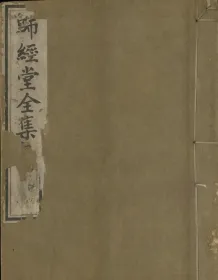 師經堂全集